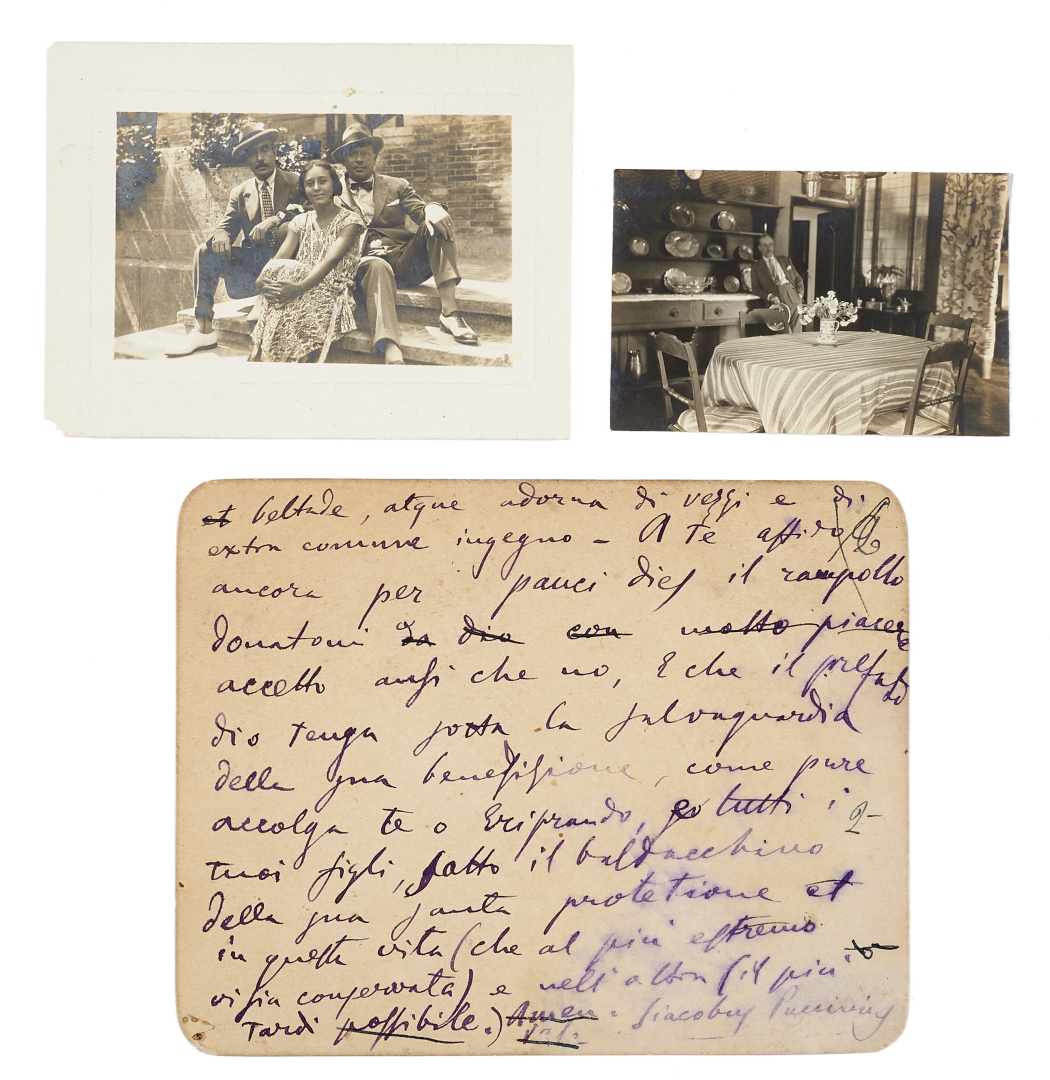 et beltade, atque adorna di vezzi e di
extra comune ingegno – A Te affido
ancora per pauci dies il rampollo
donatomi da dio con molto piacere
accetto anzi che no, E che il prefato
dio tenga sotto la salvaguardia
della sua benedizione, come pure
accolga te o Eriprando, co tutti i
2-
tuoi figli, sotto il baldacchino
della sua santa protetione et
in questa vita (che al più estremo
sia conservata) e nell'altra (il più
Tardi possibile.) Amen. Giacobus Puccinius